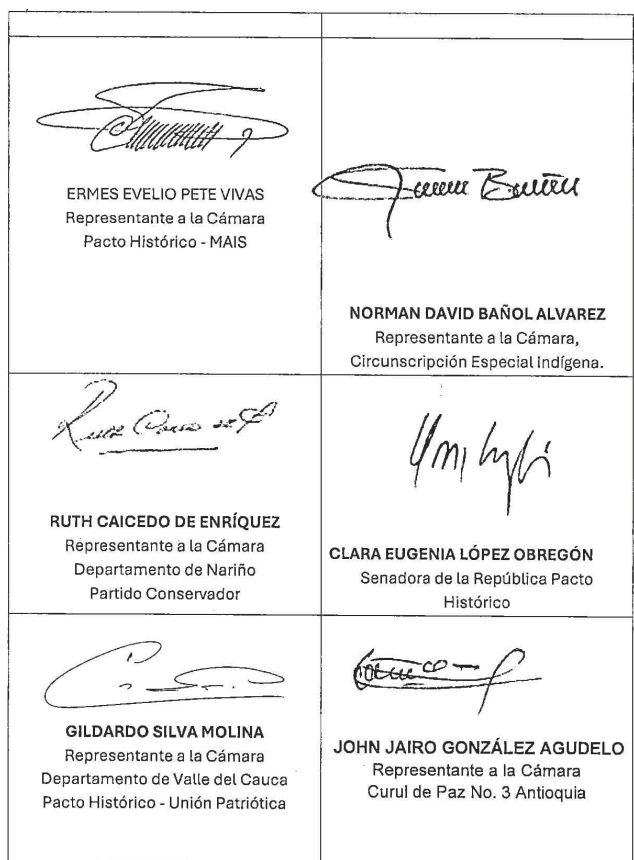 ERMES EVELIO PETE VIVAS
Representante a la Cámara
Pacto Histórico - MAIS
NORMAN DAVID BAÑOL ALVAREZ
Representante a la Cámara,
Circunscripción Especial Indígena.
RUTH CAICEDO DE ENRÍQUEZ
Representante a la Cámara
Departamento de Nariño
Partido Conservador
CLARA EUGENIA LÓPEZ OBREGÓN
Senadora de la República Pacto
Histórico
GILDARDO SILVA MOLINA
Representante a la Cámara
Departamento de Valle del Cauca
Pacto Histórico - Unión Patriótica
JOHN JAIRO GONZÁLEZ AGUDELO
Representante a la Cámara
Curul de Paz No. 3 Antioquia